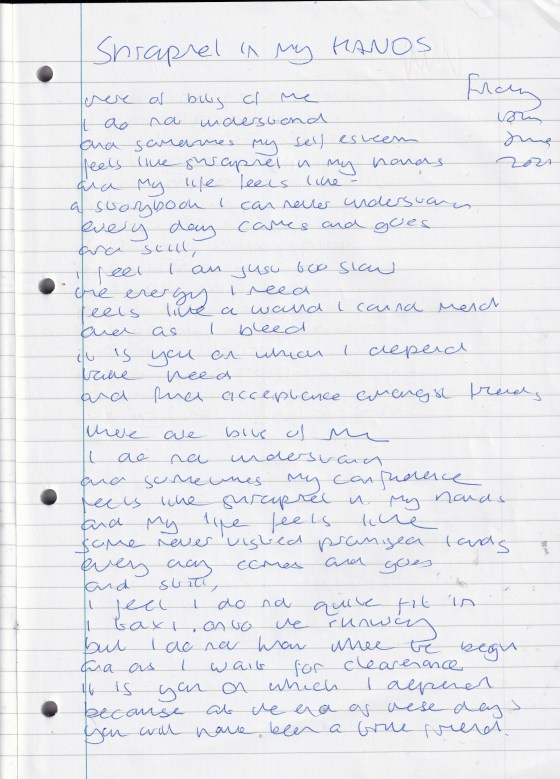 Shrapnel in my HANDS
Friday
18th
June
2021
there are bits of me
I do not understand
and sometimes my self esteem
feels like shrapnel in my hands
and my life feels like -
a storybook I can never understand
every day comes and goes
and still,
I feel I am just too slow
the energy I need
feels like a wound I cannot mend
and as I bleed
it is you on which I depend
need
and find acceptance amongst friends
there are bits of me
I do not understand
and sometimes my confidence
feels like shrapnel in my hands
and my life feels like
some never visited promised lands
every day comes and goes
and still,
I feel I do not quite fit in
I taxi onto the runway
but I do not know where to begin
and as I wait for clearance
it is you on which I depend
because at the end of these days
you will have been a true friend.